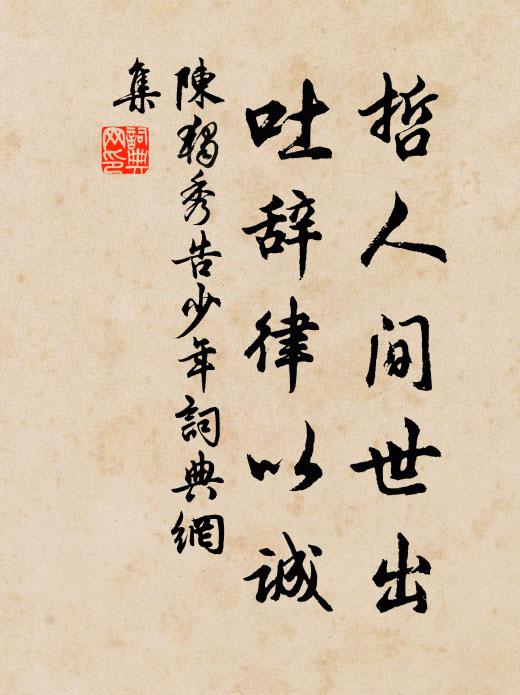 哲人間世出
吐辞律以誠
陳獨秀告少年詞典網
集
詞典网印